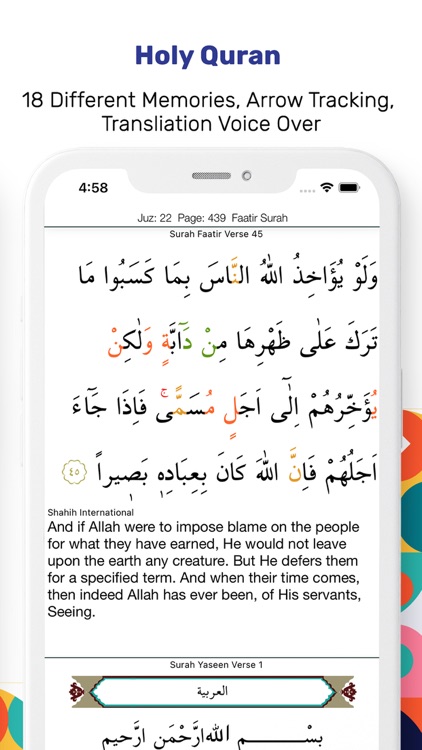 Holy Quran
18 Different Memories, Arrow Tracking,
Transliation Voice Over
4:58
Juz: 22 Page: 439 Faatir Surah
Surah Faatir Verse 45
وَلَوْ يُؤَاخِذُ اللّٰهُ النَّاسَ بِمَا كَسَبُوا مَا
تَرَكَ عَلٰى ظَهْرِهَا مِنْ دَٓابَّةٍ وَلٰكِنْ
يُؤَخِّرُهُمْ اِلٰٓى اَجَلٍ مُسَمًّىۚ فَاِذَا جَٓاءَ
اَجَلُهُمْ فَاِنَّ اللّٰهَ كَانَ بِعِبَادِه۪ بَص۪يراً ٤٥
Shahih International
And if Allah were to impose blame on the people
for what they have earned, He would not leave
upon the earth any creature. But He defers them
for a specified term. And when their time comes,
then indeed Allah has ever been, of His servants,
Seeing.
Surah Yaseen Verse 1
العربية
بِسْمِ اللهِ ارَّحْمَنِ ارَّحِيمِ